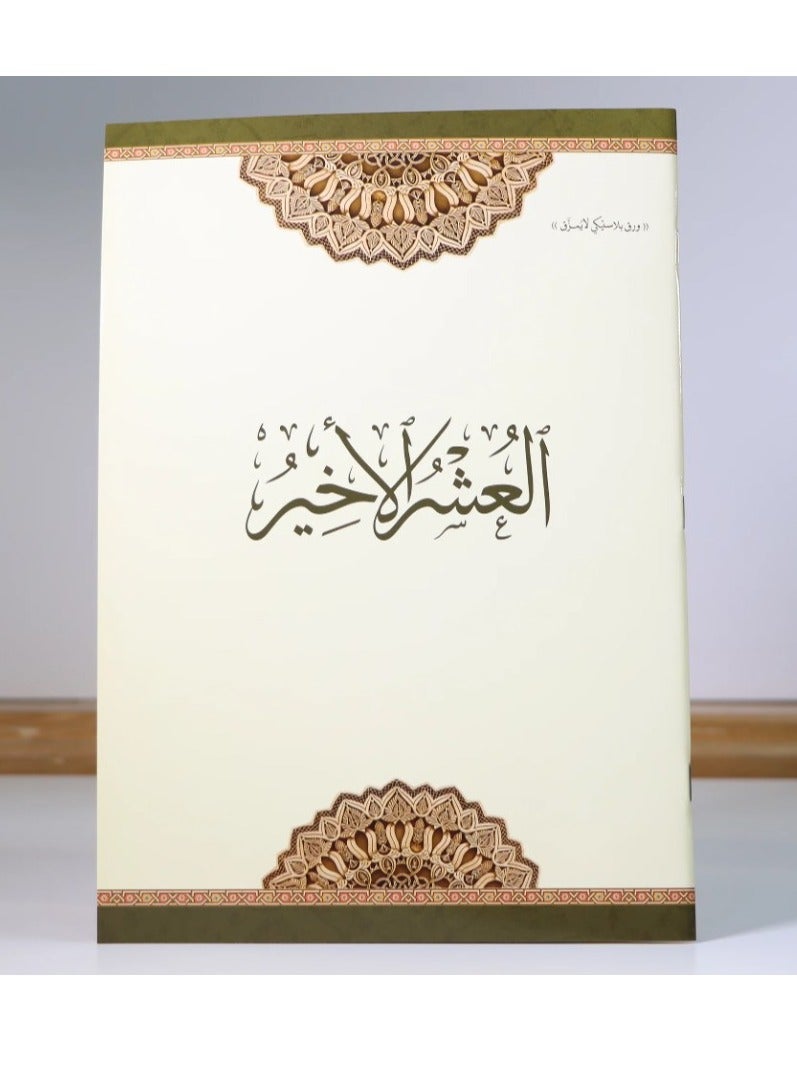 « ورق بلاستيكي لا يُمزَّق »
ٱلعُشْرُ ٱلأَخِيرُ